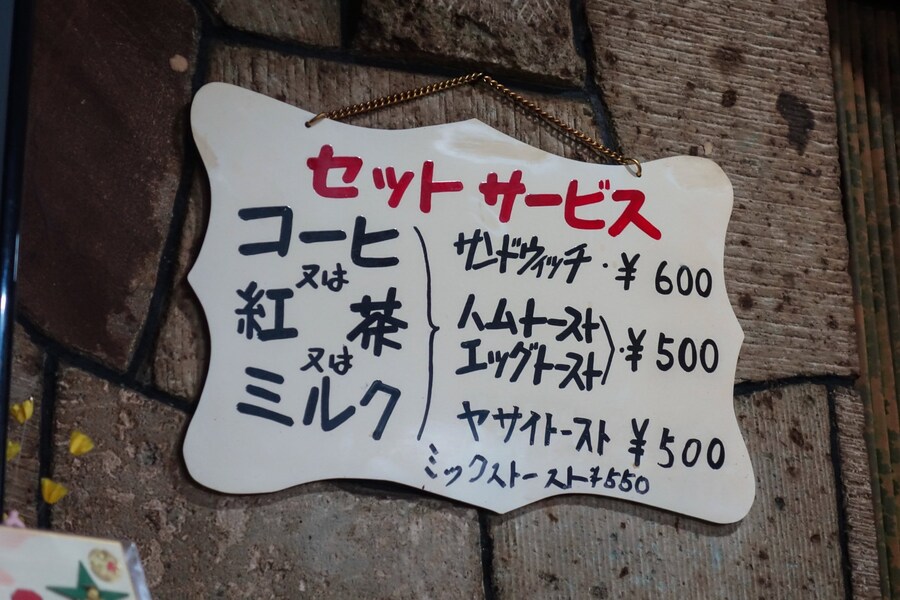 セットサービス
コーヒ
又は
紅 茶
又は
ミルク
サンドウィッチ・¥600
ハムトースト
エッグトースト
・¥500
ヤサイトースト ¥500
ミックストースト¥550